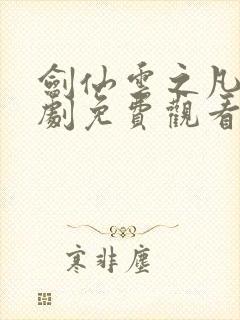 劍仙雲之凡
劇免費觀看
寒非塵